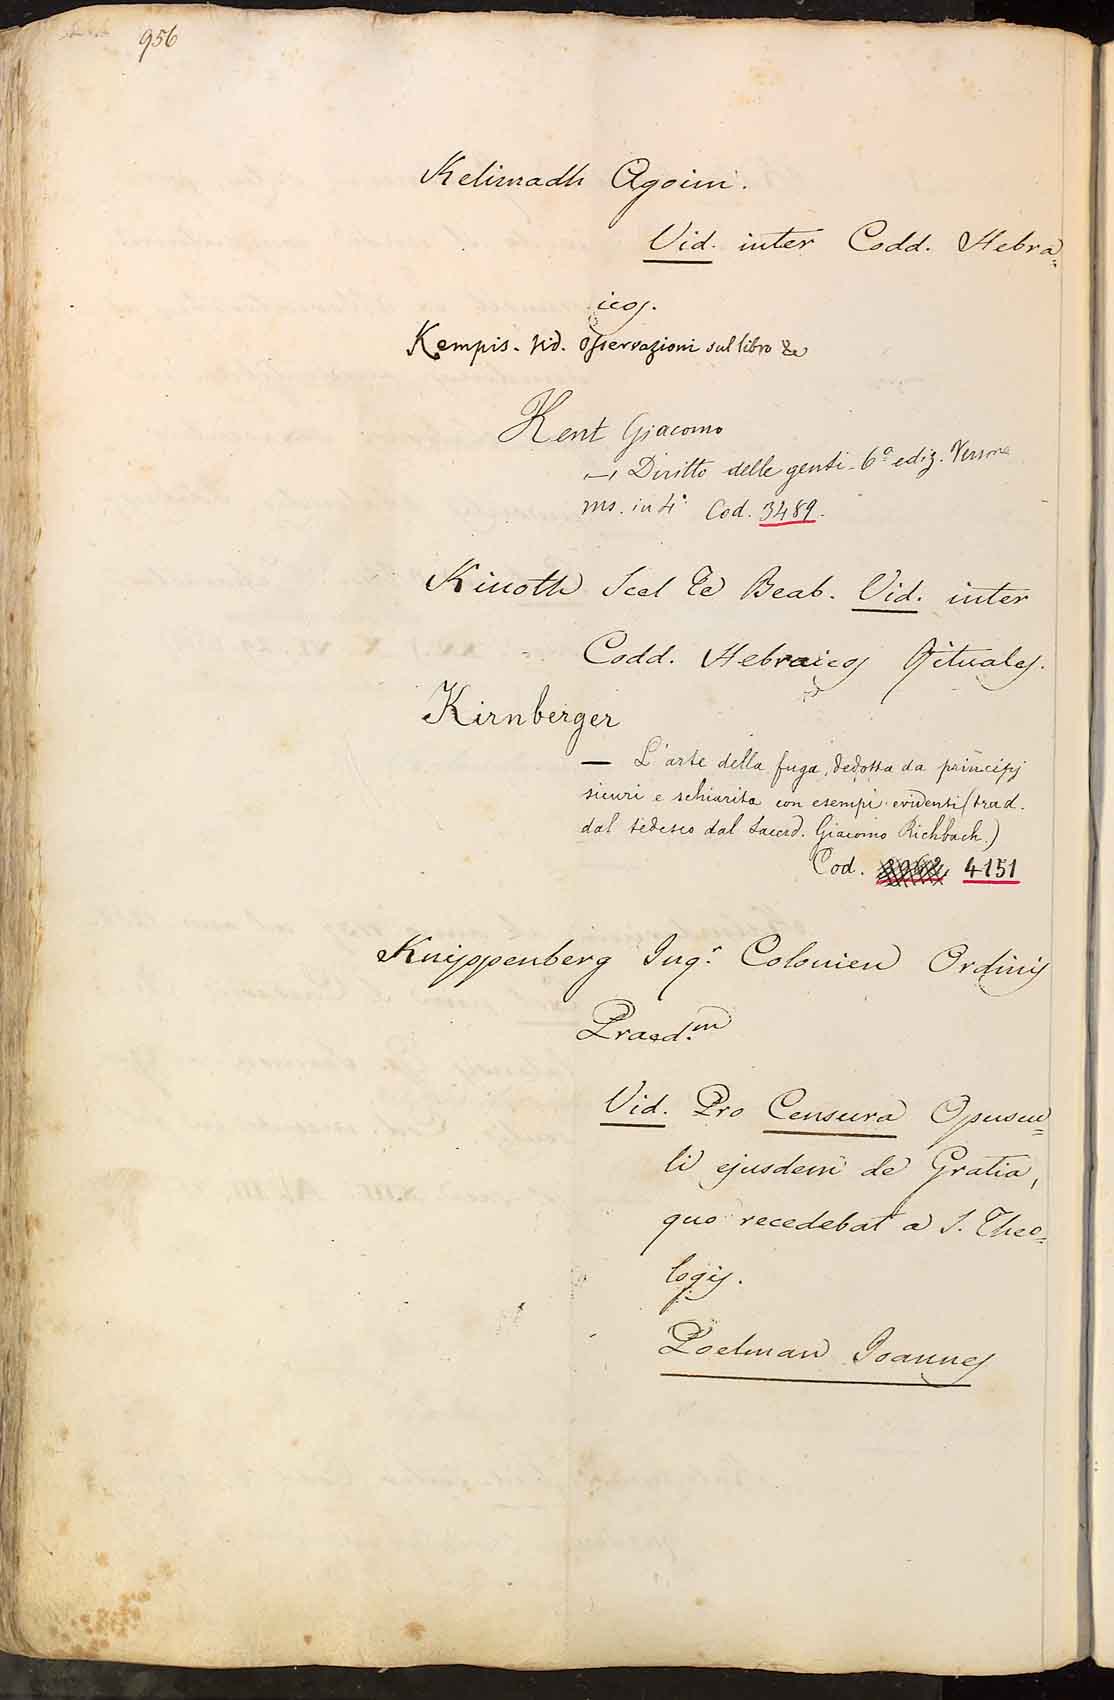 956
Kelimadh Agoim.
Vid. inter Codd. Hebra=
icos.
Kempis. Vid. Osservazioni sul libro &c
Kent Giacomo
— Diritto delle genti. 6a ediz. Versione
ms. in 4° Cod. 3489.
Kinoth Scel Te Beab. Vid. inter
Codd. Hebraicos Rituales.
Kirnberger
— L'arte della fuga, dedotta da principj
sicuri e schiarita con esempi evidenti (trad.
dal tedesco dal Sacerd. Giacomo Richbach.)
Cod. 4151
Knippenberg Colonien Ordinis
Praed.m
Vid. Pro Censura Opuscu=
li ejusdem de Gratia,
quo recedebat a S. Theo=
logis.
Poelman Joannes